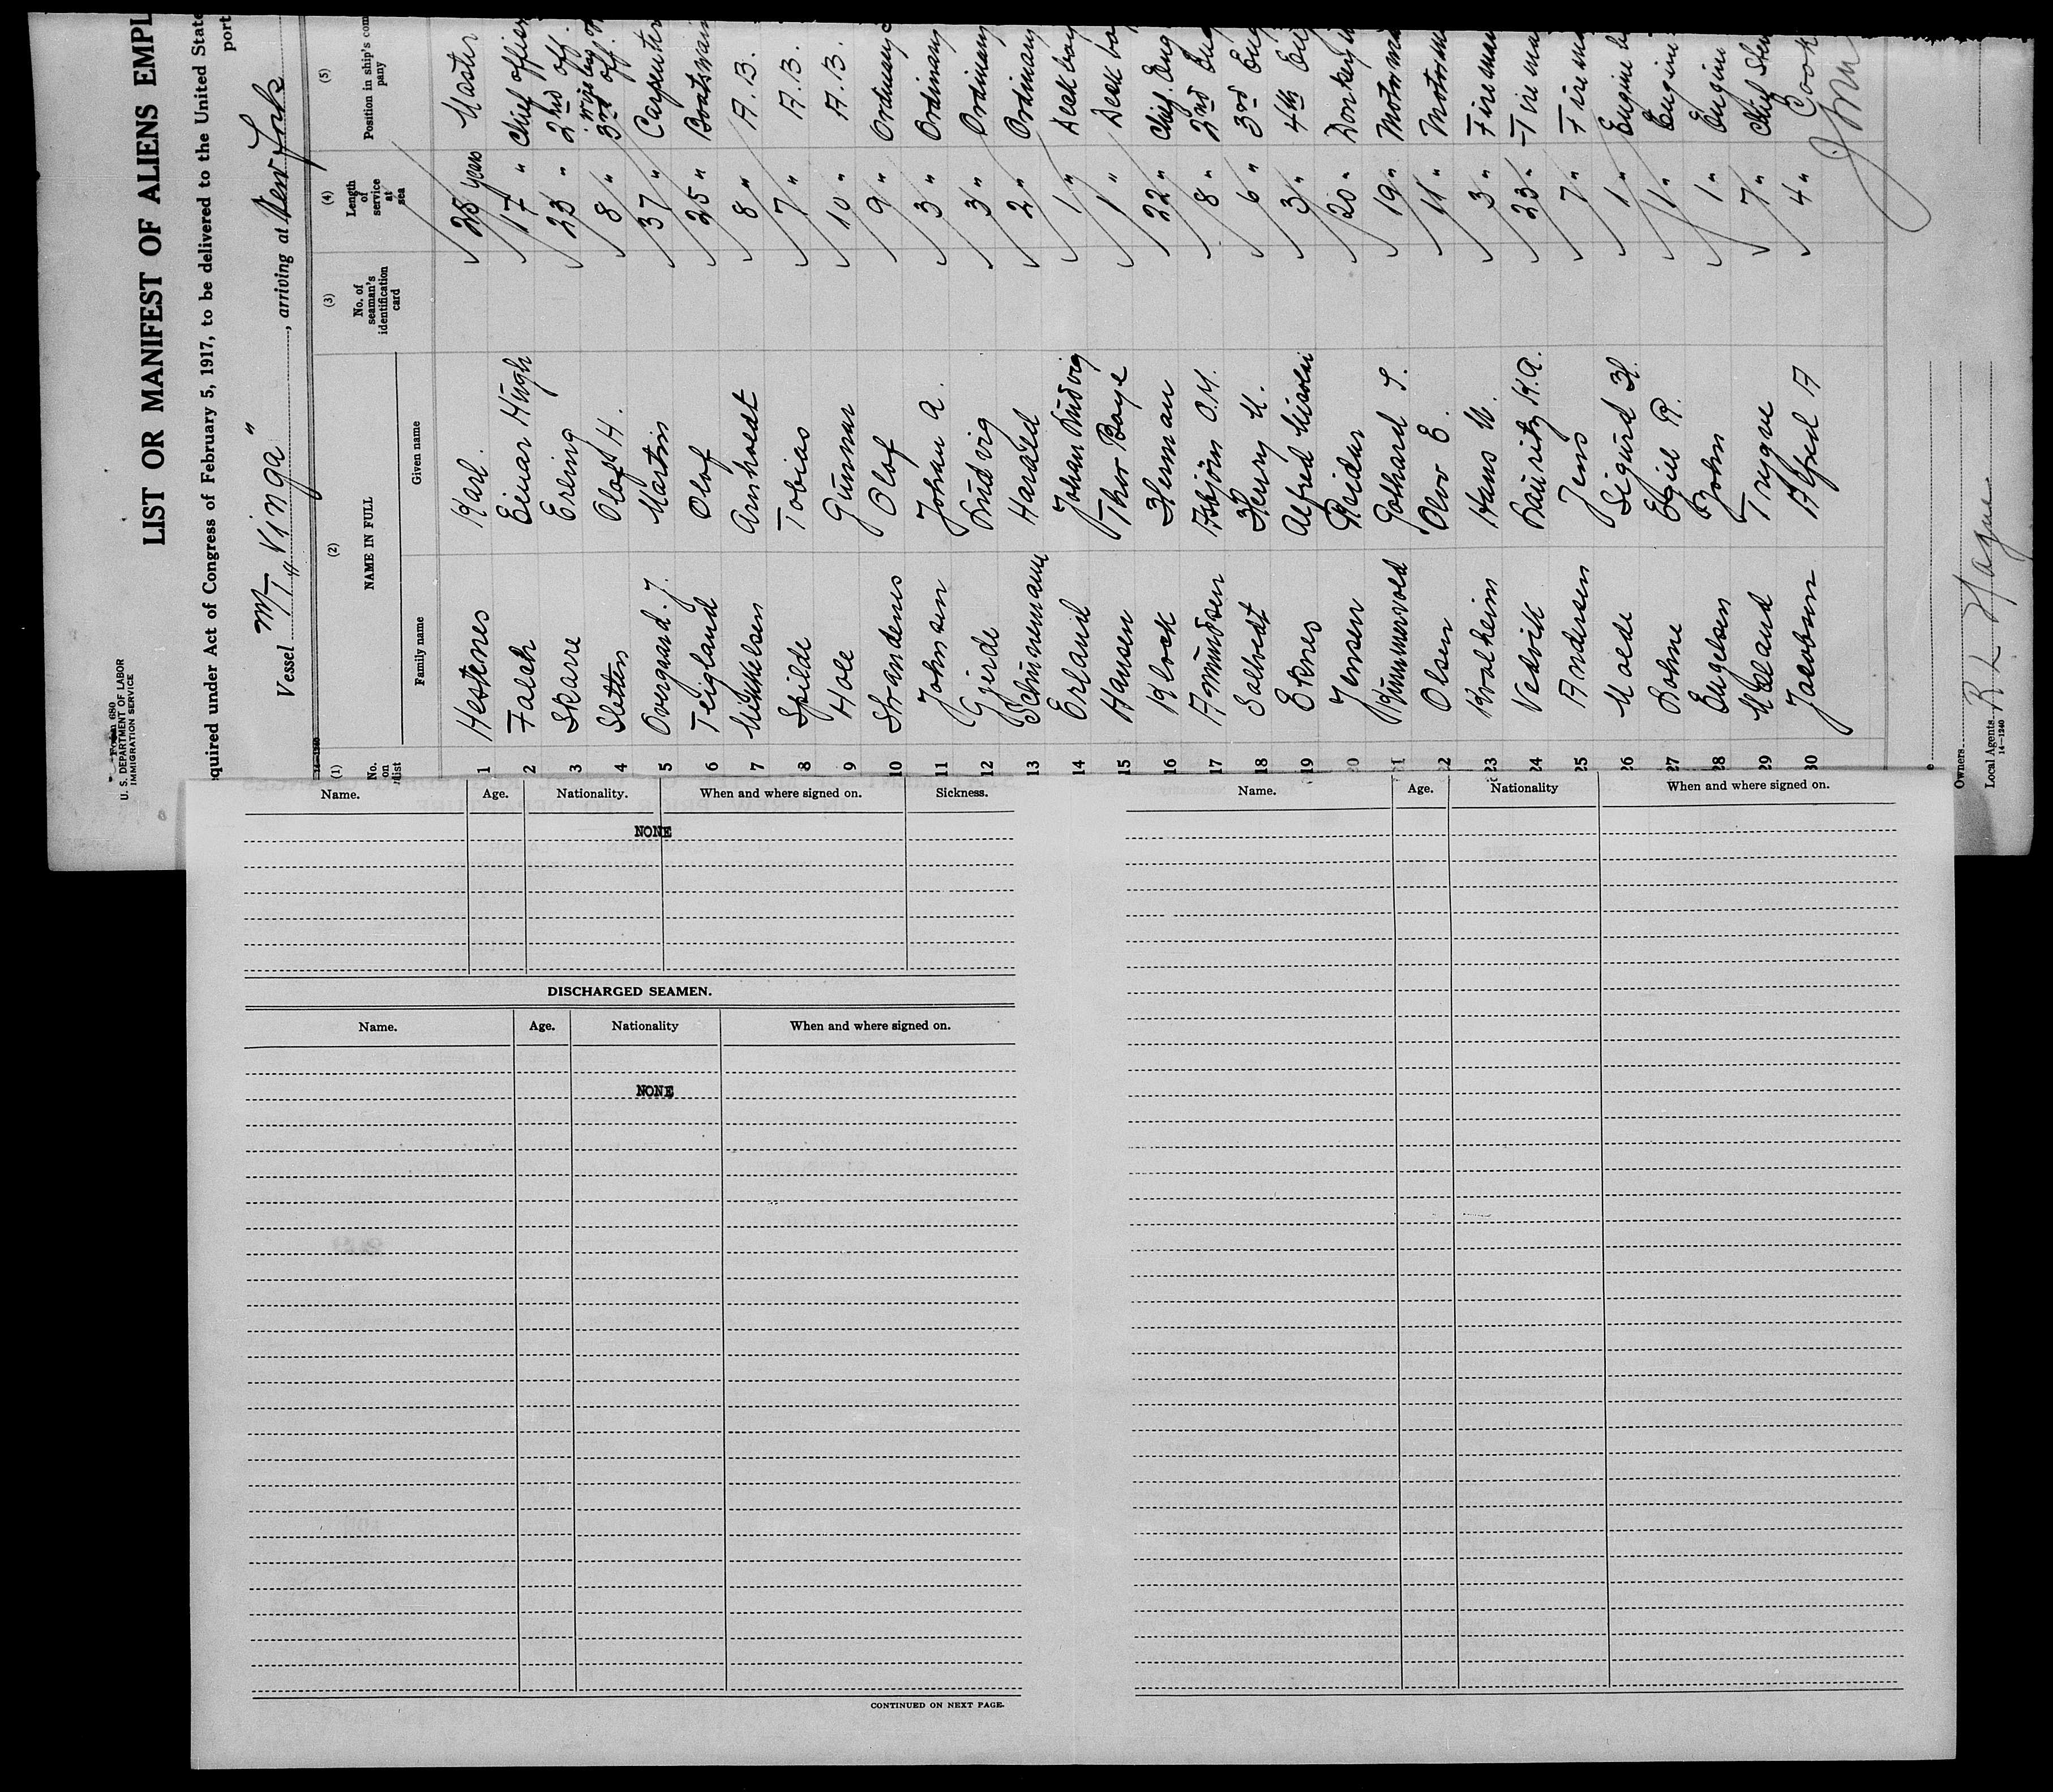 Form 680
U. S. DEPARTMENT OF LABOR
IMMIGRATION SERVICE
LIST OR MANIFEST OF ALIENS EMPL
equired under Act of Congress of February 5, 1917, to be delivered to the United State
port
Vessel M/T "Vinga", arriving at New York
(1) (2) (3) (4) (5)
No. on list NAME IN FULL No. of seaman's identification card Length of service at sea Position in ship's com pany
Family name Given name
1 Hestenes Karl. 28 years Master
2 Falch Einar Hugh 17 " Chief offise
3 Skarre Erling 23 " 2nd off.
4 Sletten Olaf H. 8 " 3rd off.
5 Overgaard. J. Martin 37 " Carpenter
6 Teigland Olof 25 " Boatswain
7 Mikkelsen Arnholdt 8 " A.B.
8 Spilde Tobias 7 " A.B.
9 Hole Gunnar 10 " A.B.
10 Strandenes Olof 9 " Ordinary
11 Johnsen Johan A. 3 " Ordinary
12 Gjerde Ludvig 3 " Ordinary
13 Schünemann Harald 2 " Ordinary
14 Erland Johan Ludvig 1 " Deck boy
15 Hansen Thor Boye 1 " Deck bo
16 Klock Herman 22 " Chief. Eng
17 Amundsen Asbjörn O.M. 8 " 2nd Eng
18 Saltvedt Henry M. 6 " 3rd Eng
19 Eknes Alfred 3 " 4th Eng
20 Jensen Reidar 20 " Donkey
21 Kummervold Gothard S. 19 " Motorma
22 Olsen Olav E. 11 " Motorm
23 Kvalheim Hans M. 3 " Fireman
24 Vedvik Lauritz K.A. 23 " Firema
25 Andersen Jens 7 " Firema
26 Molde Sigurd H. 1 " Engine b
27 Bohne Egill R. 1 " Engine
28 Engelsen John 1 " Engine
29 Meland Trygve 7 " Chief Stew
30 Jacobsen Alfred A 4 " Cook
Owners
Local Agents R L Hague
14—1240
Name. Age. Nationality. When and where signed on. Sickness.
NONE
DISCHARGED SEAMEN.
Name. Age. Nationality When and where signed on.
NONE
CONTINUED ON NEXT PAGE.
Name. Age. Nationality When and where signed on.